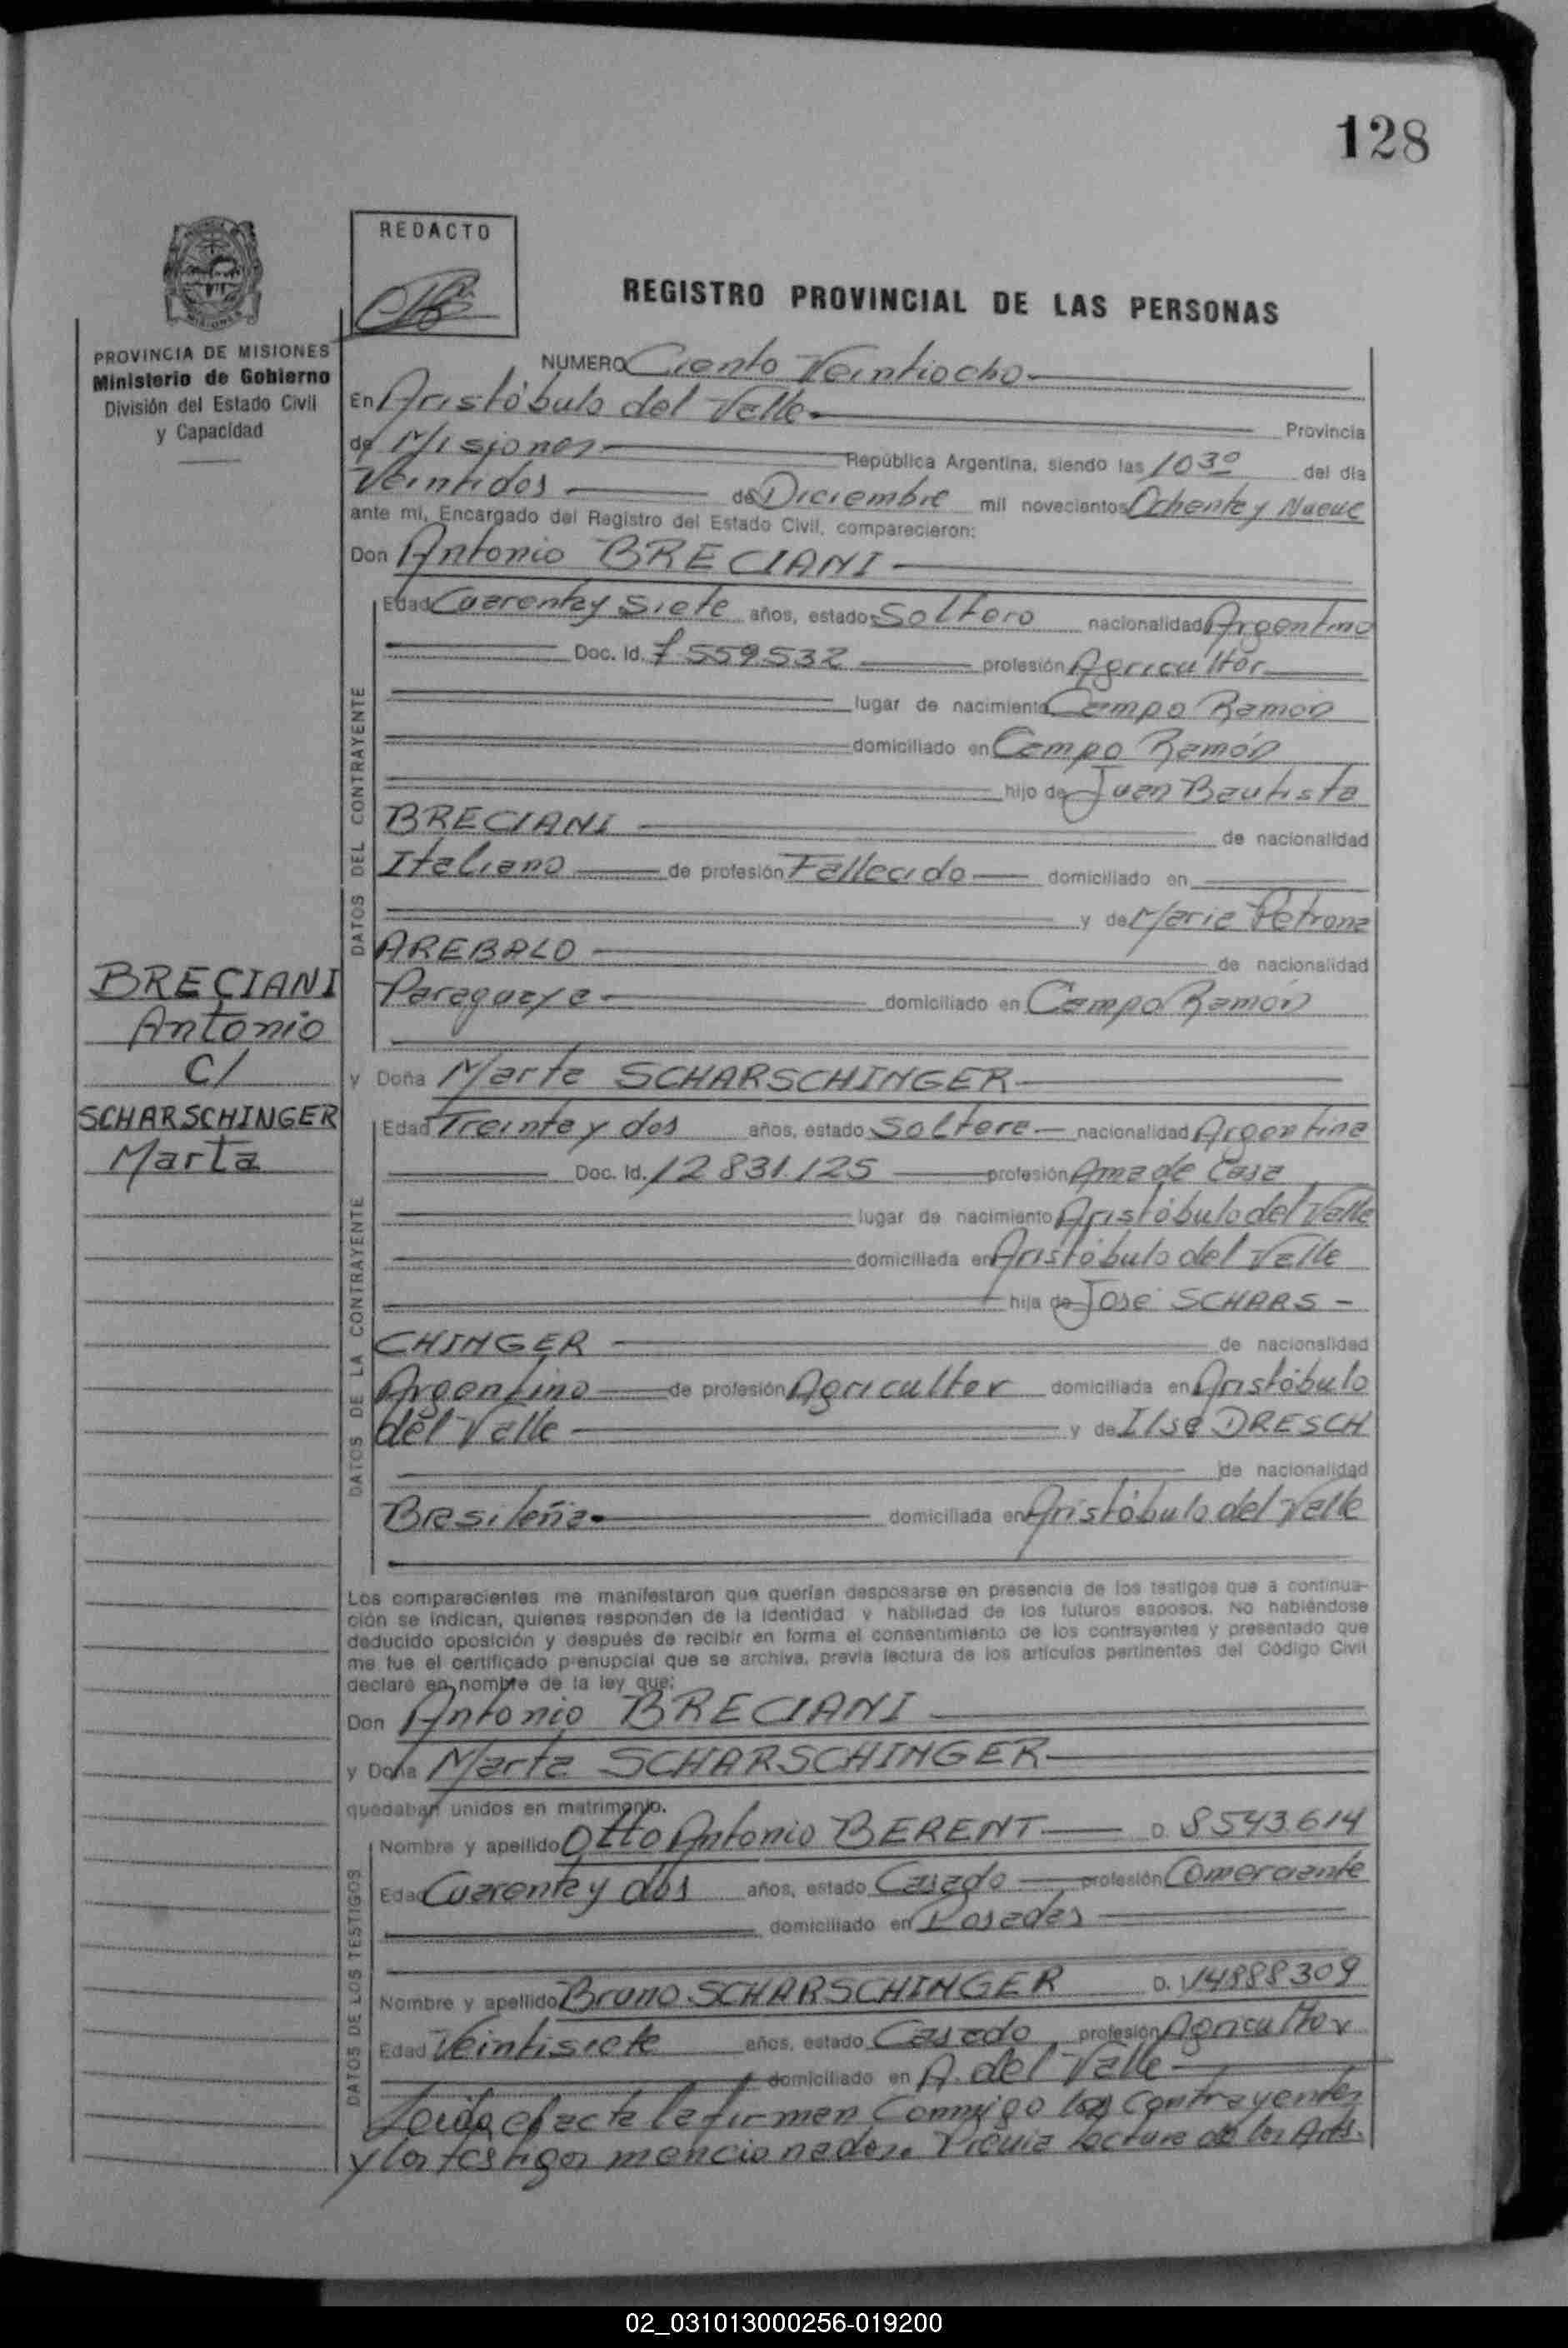 128
REDACTO
REGISTRO PROVINCIAL DE LAS PERSONAS
PROVINCIA DE MISIONES
Ministerio de Gobierno
División del Estado Civil
y Capacidad
NUMERO Ciento Veintiocho
En Aristóbulo del Valle Provincia
de Misiones República Argentina, siendo las 10 30 del dia
Veintidos de Diciembre mil novecientos Ochenta y Nueve
ante mi, Encargado del Registro del Estado Civil, comparecieron:
Don Antonio BRECIANI
DATOS DEL CONTRAYENTE
Edad Cuarenta y Siete años, estado Soltero nacionalidad Argentino
Doc. Id. 7.559.532 profesión Agricultor
lugar de nacimiento Campo Ramón
domiciliado en Campo Ramón
hijo de Juan Bautista
BRECIANI de nacionalidad
Italiano de profesión Fallecido domiciliado en
y de Maria Petrona
AREBALO de nacionalidad
Paraguaya domiciliado en Campo Ramón
BRECIANI
Antonio
C/
SCHARSCHINGER
Marta
y Doña Marta SCHARSCHINGER
DATOS DE LA CONTRAYENTE
Edad Treinta y dos años, estado Soltera nacionalidad Argentina
Doc. Id. 12.831.125 profesión Ama de Casa
lugar de nacimiento Aristóbulo del Valle
domiciliada en Aristóbulo del Valle
hija de José SCHARS-
CHINGER de nacionalidad
Argentino de profesión Agricultor domiciliada en Aristóbulo
del Valle y de Ilse DRESCH
de nacionalidad
Brasileña domiciliada en Aristóbulo del Valle
Los comparecientes me manifestaron que querían desposarse en presencia de los testigos que a continua-
ción se indican, quienes responden de la identidad y habilidad de los futuros esposos. No habiéndose
deducido oposición y después de recibir en forma el consentimiento de los contrayentes y presentado que
me fue el certificado prenupcial que se archiva, previa lectura de los artículos pertinentes del Código Civil
declaré en nombre de la ley que:
Don Antonio BRECIANI
y Doña Marta SCHARSCHINGER
quedaban unidos en matrimonio.
DATOS DE LOS TESTIGOS
Nombre y apellido Otto Antonio BERENT D. 8543.614
Edad Cuarenta y dos años, estado Casado profesión Comerciante
domiciliado en Posadas
Nombre y apellido Bruno SCHARSCHINGER D. 14888309
Edad Veintisiete años, estado Casado profesión Agricultor
domiciliado en A. del Valle
Leida el acta la firman Conmigo los contrayentes
y los testigos mencionados. Previa lectura de los Arts.
02_031013000256-019200